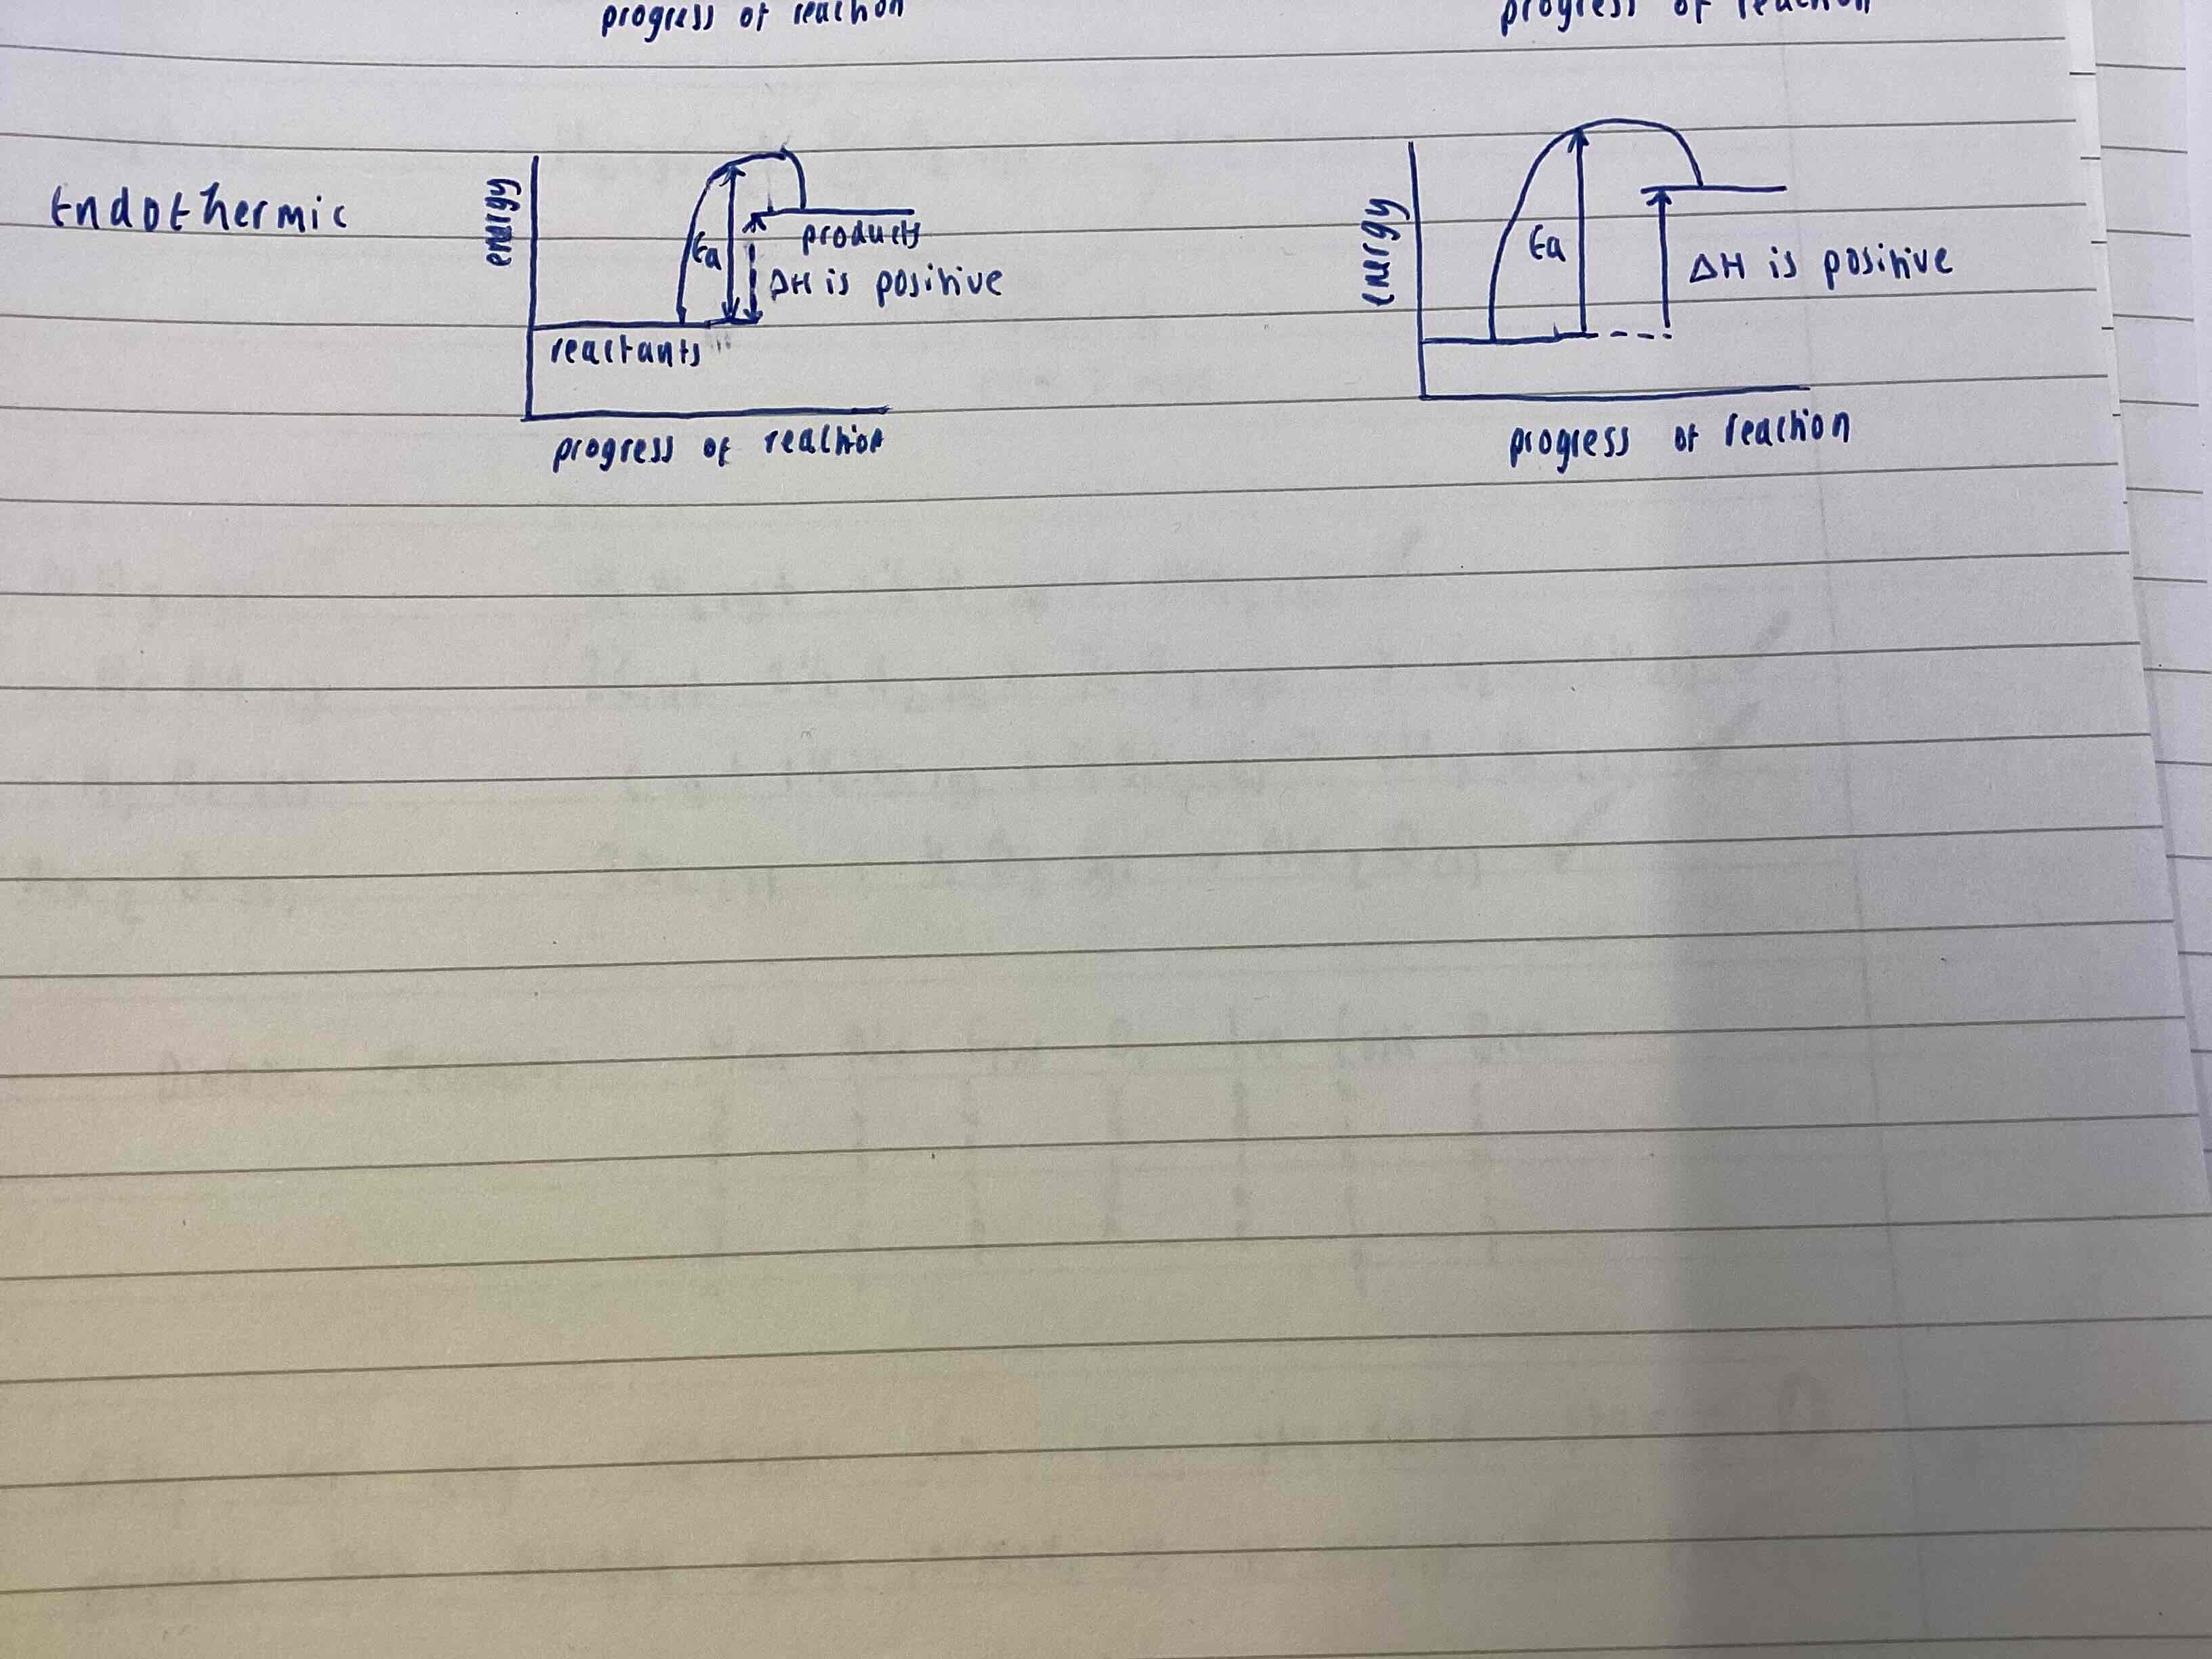 progress of reaction
progress of reaction
Endothermic
energy
Ea
products
ΔH is positive
reactants
progress of reaction
energy
Ea
ΔH is positive
progress of reaction